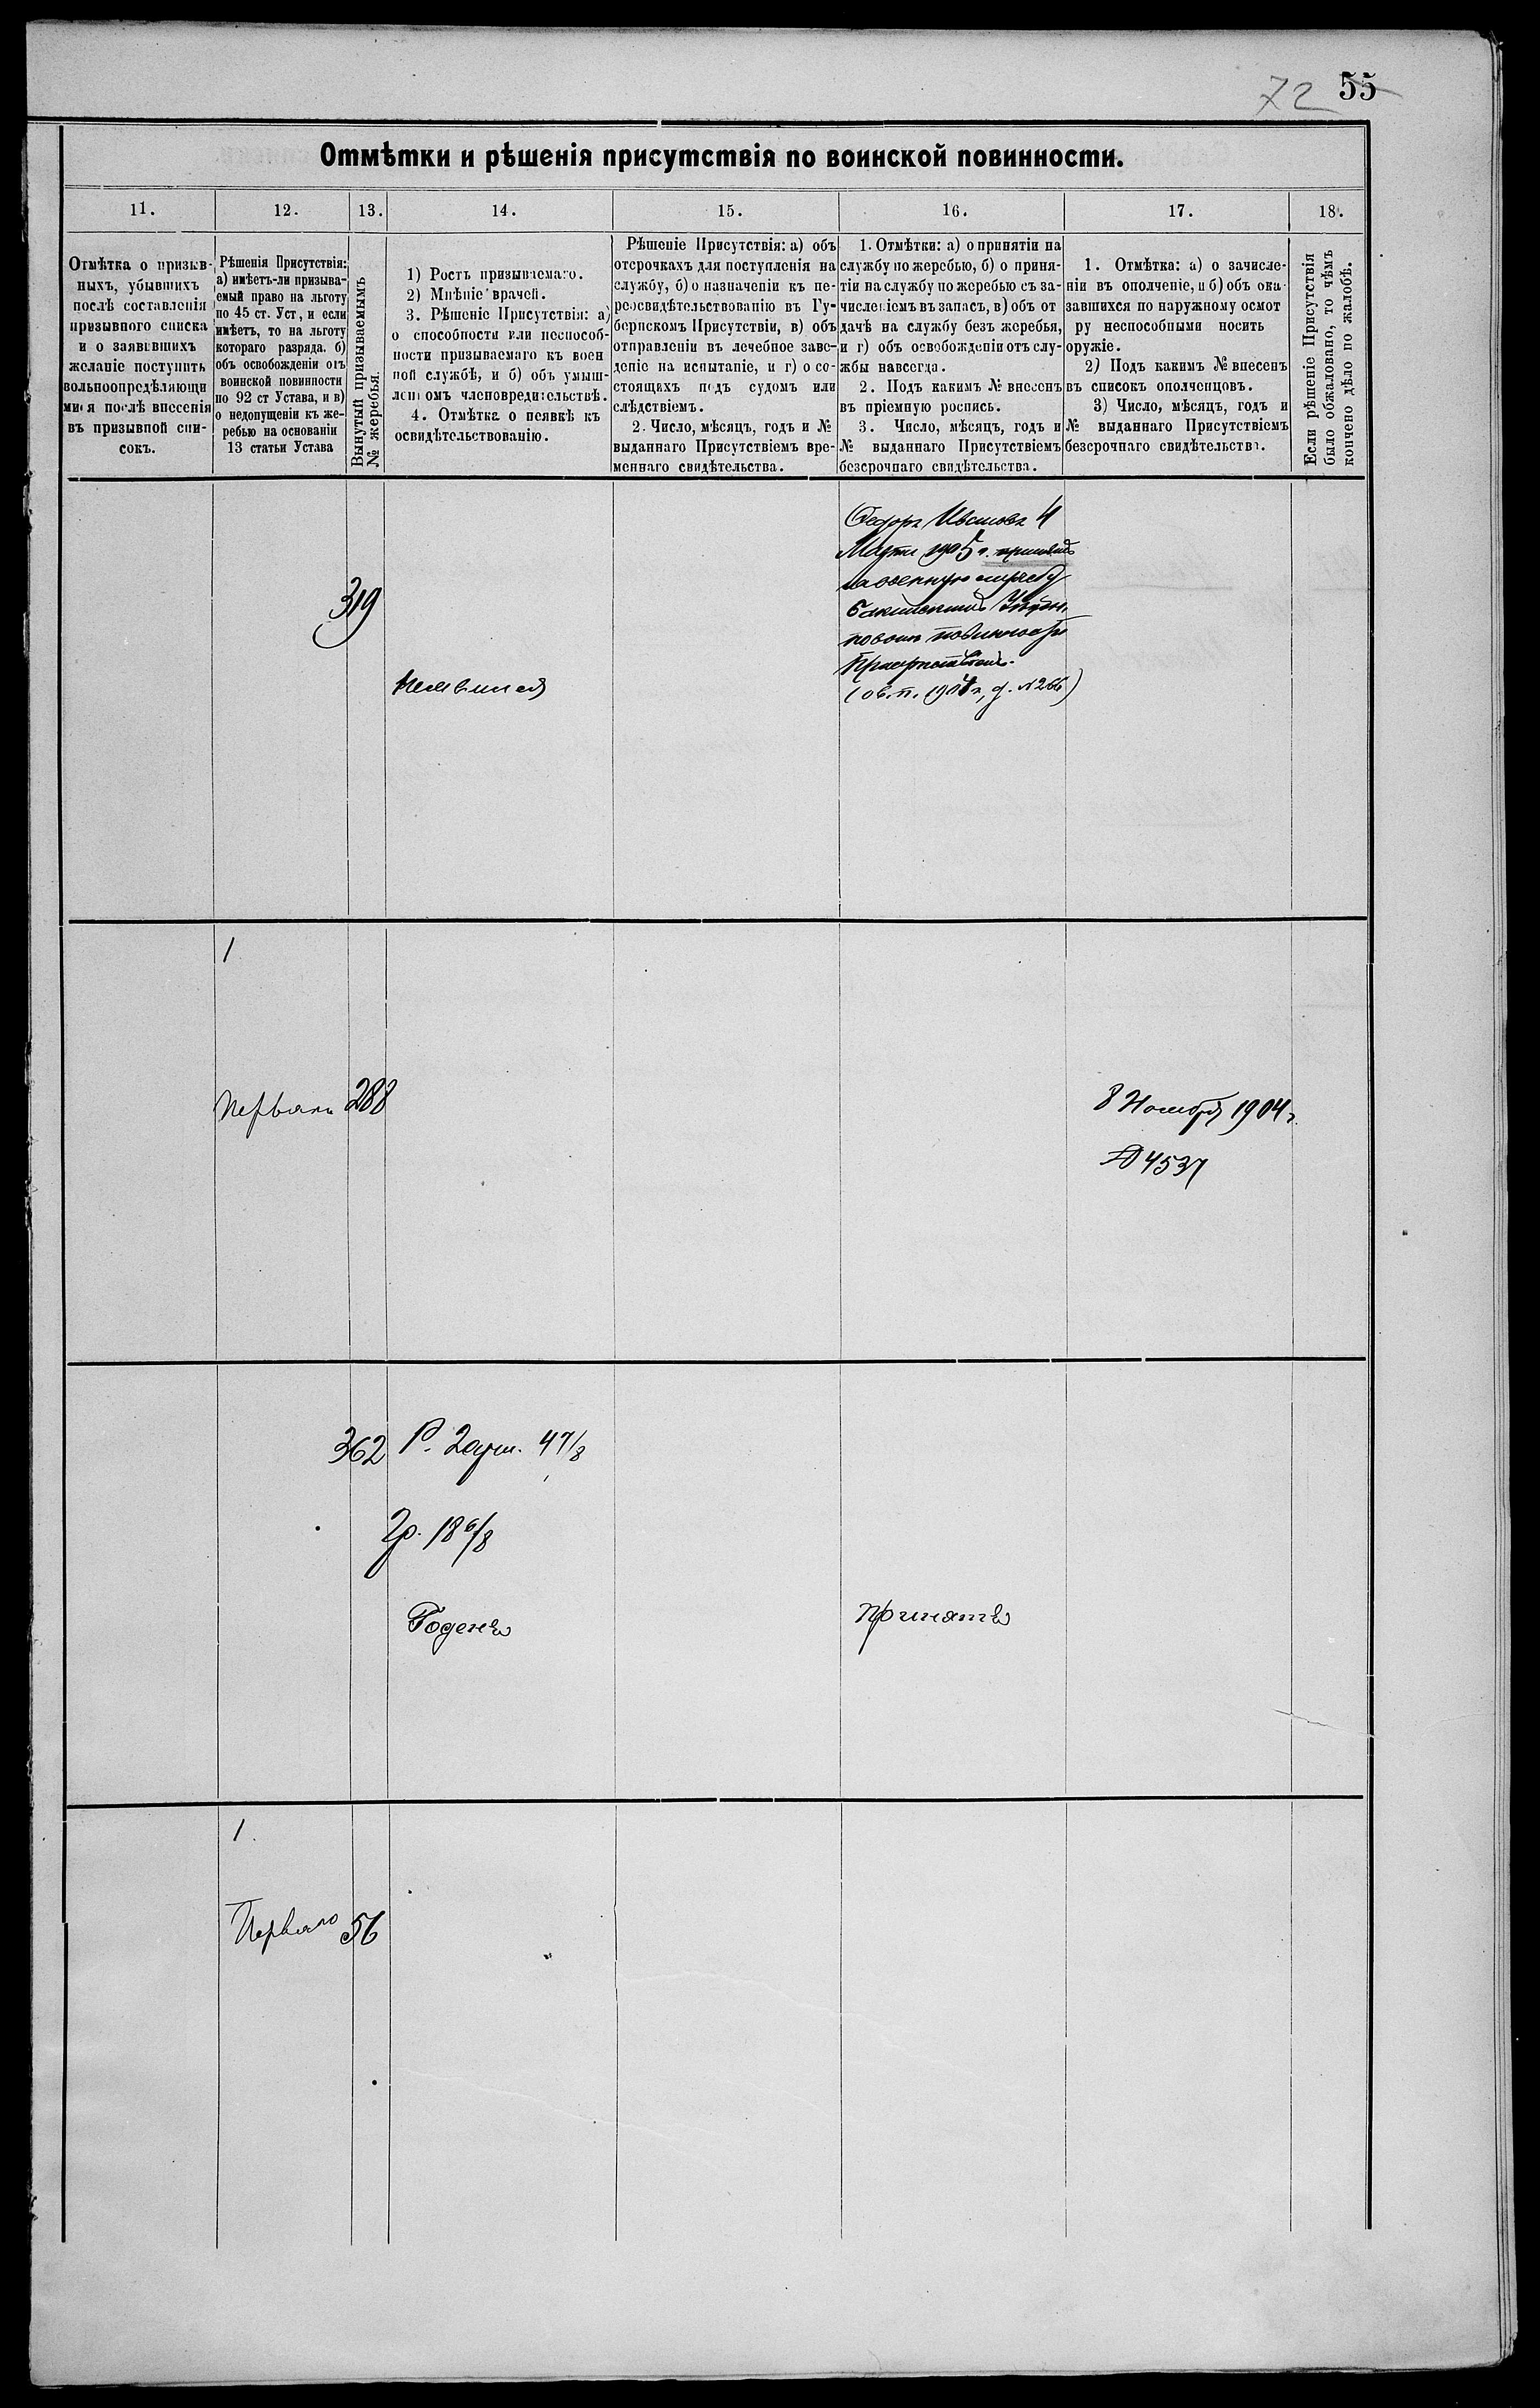 72 55
Отмѣтки и рѣшенія присутствія по воинской повинности.
11. 12. 13. 14. 15. 16. 17. 18.
Отмѣтка о призыв-
ныхъ, убывшихъ
послѣ составленія
призывного списка
и о заявившихъ
желаніе поступить
вольноопредѣляющи
мися послѣ внесенія
въ призывной спи-
сокъ.
Рѣшенія Присутствія:
а) имѣетъ-ли призыва-
емый право на льготу
по 45 ст. Уст, и если
имѣетъ, то на льготу
котораго разряда. б)
объ освобожденіи отъ
воинской повинности
по 92 ст Устава, и в)
о недопущеніи къ же-
ребью на основаніи
13 статьи Устава
Вынутый призываемымъ
№ жеребья.
1) Ростъ призываемаго.
2) Мнѣніе врачей.
3. Рѣшеніе Присутствія: а)
о способности или неспособ-
ности призываемаго къ воен
ной службѣ, и б) объ умыш-
ленномъ членовредительствѣ.
4. Отмѣтка о неявкѣ къ
освидѣтельствованію.
Рѣшеніе Присутствія: а) объ
отсрочкахъ для поступленія на
службу, б) о назначеніи къ пе-
реосвидѣтельствованію въ Гу-
бернскомъ Присутствіи, в) объ
отправленіи въ лечебное заве-
деніе на испытаніе, и г) о со-
стоящахъ подъ судомъ или
слѣдствіемъ.
2. Число, мѣсяцъ, годъ и №
выданнаго Присутствіемъ вре-
меннаго свидѣтельства.
1. Отмѣтки: а) о принятіи на
службу по жеребью, б) о приня-
тіи на службу по жеребью съ за-
численіемъ въ запасъ, в) объ от
дачѣ на службу безъ жеребья,
и г) объ освобожденіи отъ слу-
жбы навсегда.
2. Подъ какимъ № внесенъ
въ пріемную роспись.
3. Число, мѣсяцъ, годъ и
№ выданнаго Присутствіемъ
безсрочнаго свидѣтельства.
1. Отмѣтка: а) о зачисле-
ніи въ ополченіе, и б) объ ока
завшихся по наружному осмот
ру неспособными носить
оружіе.
2) Подъ какимъ № внесенъ
въ списокъ ополченцовъ.
3) Число, мѣсяцъ, годъ и
№ выданнаго Присутствіемъ
безсрочнаго свидѣтельства.
Если рѣшеніе Присутствія
было обжаловано, то чѣмъ
кончено дѣло по жалобѣ.
319
Неявился
Федоръ Ивановъ 4
Марта 1905 г. принятъ
на военную службу
Бакинскимъ
по воин. повинности
Присутствіемъ.
(ов. п. 1904 г., д. №266)
1
Первая 288
8 Ноября 1904 г.
№ 4537
362 Р. 2 арш. 4 7/8
Гр. 18 6/8
Годенъ
Принятъ
1.
Первая 56